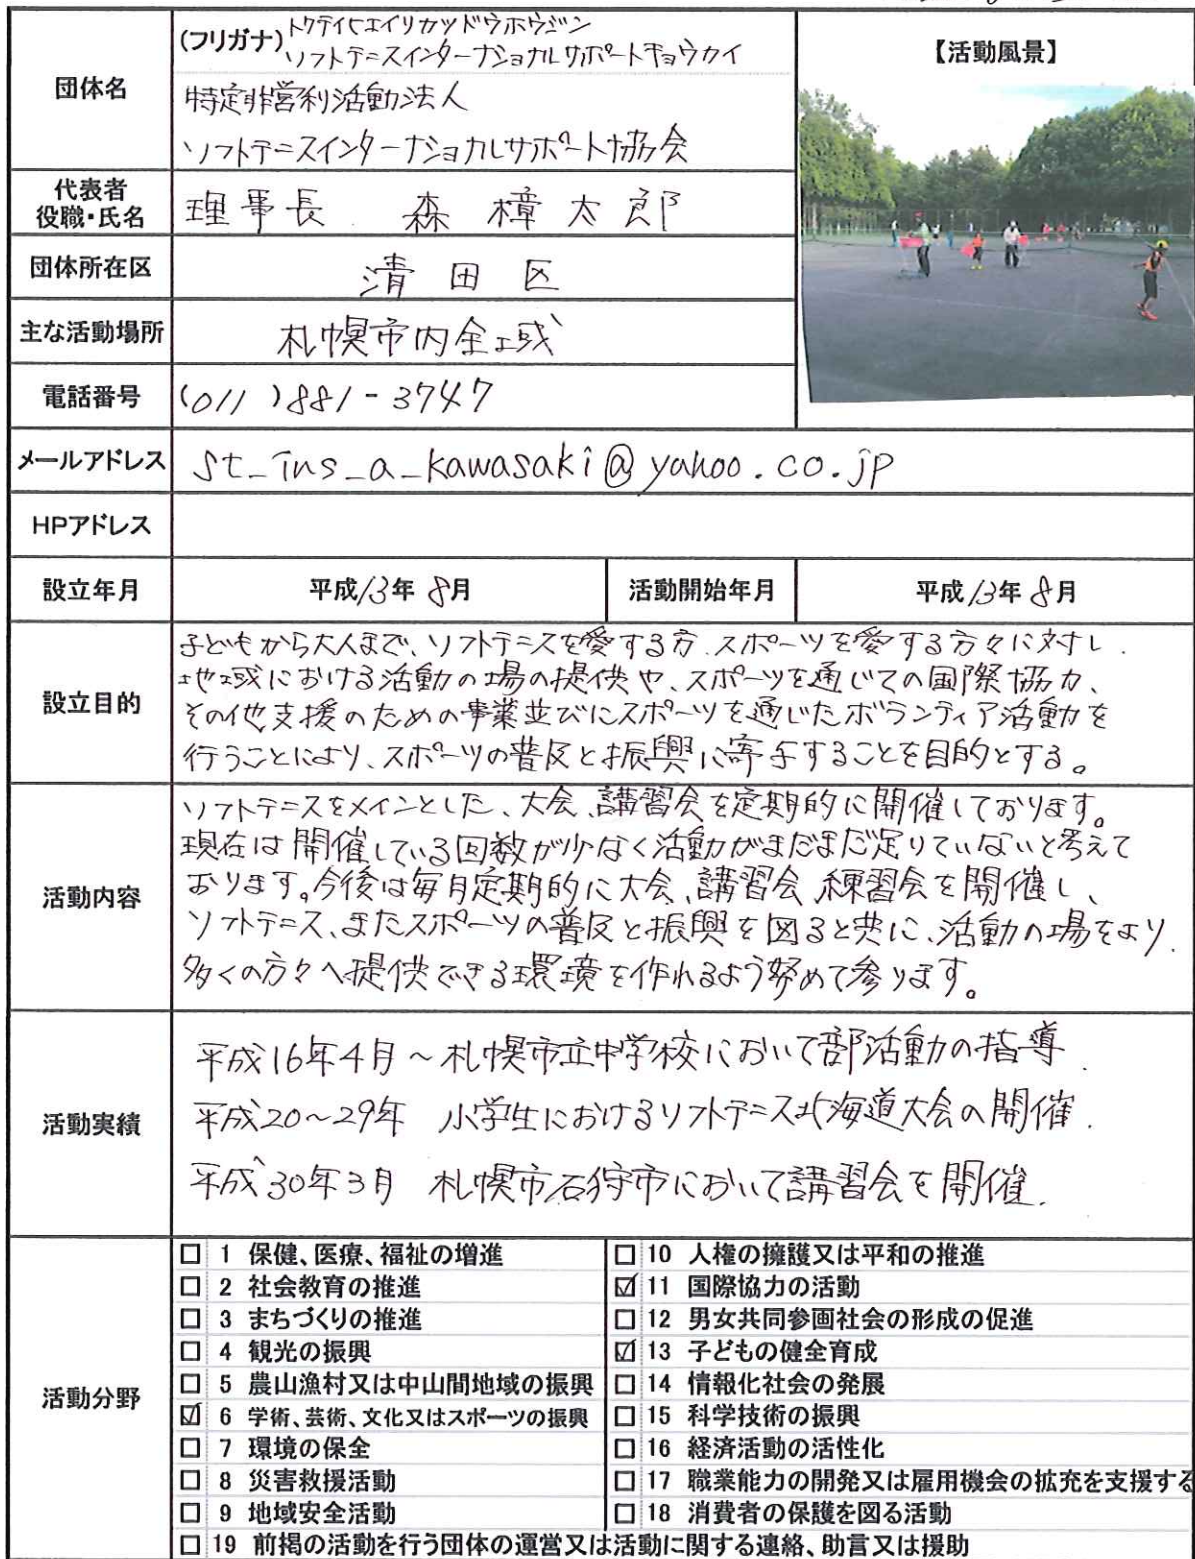 団体名
(フリガナ)トクテイヒエイリカツドウホウジン
ソフトテニスインターナショナルサポートキョウカイ
特定非営利活動法人
ソフトテニスインターナショナルサポート協会
【活動風景】
代表者
役職・氏名
理事長 森 樟太郎
団体所在区
清田区
主な活動場所
札幌市内全域
電話番号
(011)881-3747
メールアドレス
st_ins_a_kawasaki@yahoo.co.jp
HPアドレス
設立年月
平成13年8月
活動開始年月
平成13年8月
設立目的
子どもから大人まで、ソフトテニスを愛する方、スポーツを愛する方々に対し、
地域における活動の場の提供や、スポーツを通じての国際協力、
その他支援のための事業並びにスポーツを通じたボランティア活動を
行うことにより、スポーツの普及と振興に寄与することを目的とする。
活動内容
ソフトテニスをメインとした、大会、講習会を定期的に開催しております。
現在は開催している回数が少なく活動がまだまだ足りていないと考えて
おります。今後は毎月定期的に大会、講習会、練習会を開催し、
ソフトテニス、またスポーツの普及と振興を図ると共に、活動の場をより
多くの方々へ提供できる環境を作れるよう努めて参ります。
活動実績
平成16年4月~札幌市立中学校において部活動の指導.
平成20~29年 小学生におけるソフトテニス北海道大会の開催.
平成30年3月 札幌市石狩市において講習会を開催.
活動分野
□ 1 保健、医療、福祉の増進
□ 10 人権の擁護又は平和の推進
□ 2 社会教育の推進
☑ 11 国際協力の活動
□ 3 まちづくりの推進
□ 12 男女共同参画社会の形成の促進
□ 4 観光の振興
☑ 13 子どもの健全育成
□ 5 農山漁村又は中山間地域の振興
□ 14 情報化社会の発展
☑ 6 学術、芸術、文化又はスポーツの振興
□ 15 科学技術の振興
□ 7 環境の保全
□ 16 経済活動の活性化
□ 8 災害救援活動
□ 17 職業能力の開発又は雇用機会の拡充を支援する
□ 9 地域安全活動
□ 18 消費者の保護を図る活動
□ 19 前掲の活動を行う団体の運営又は活動に関する連絡、助言又は援助